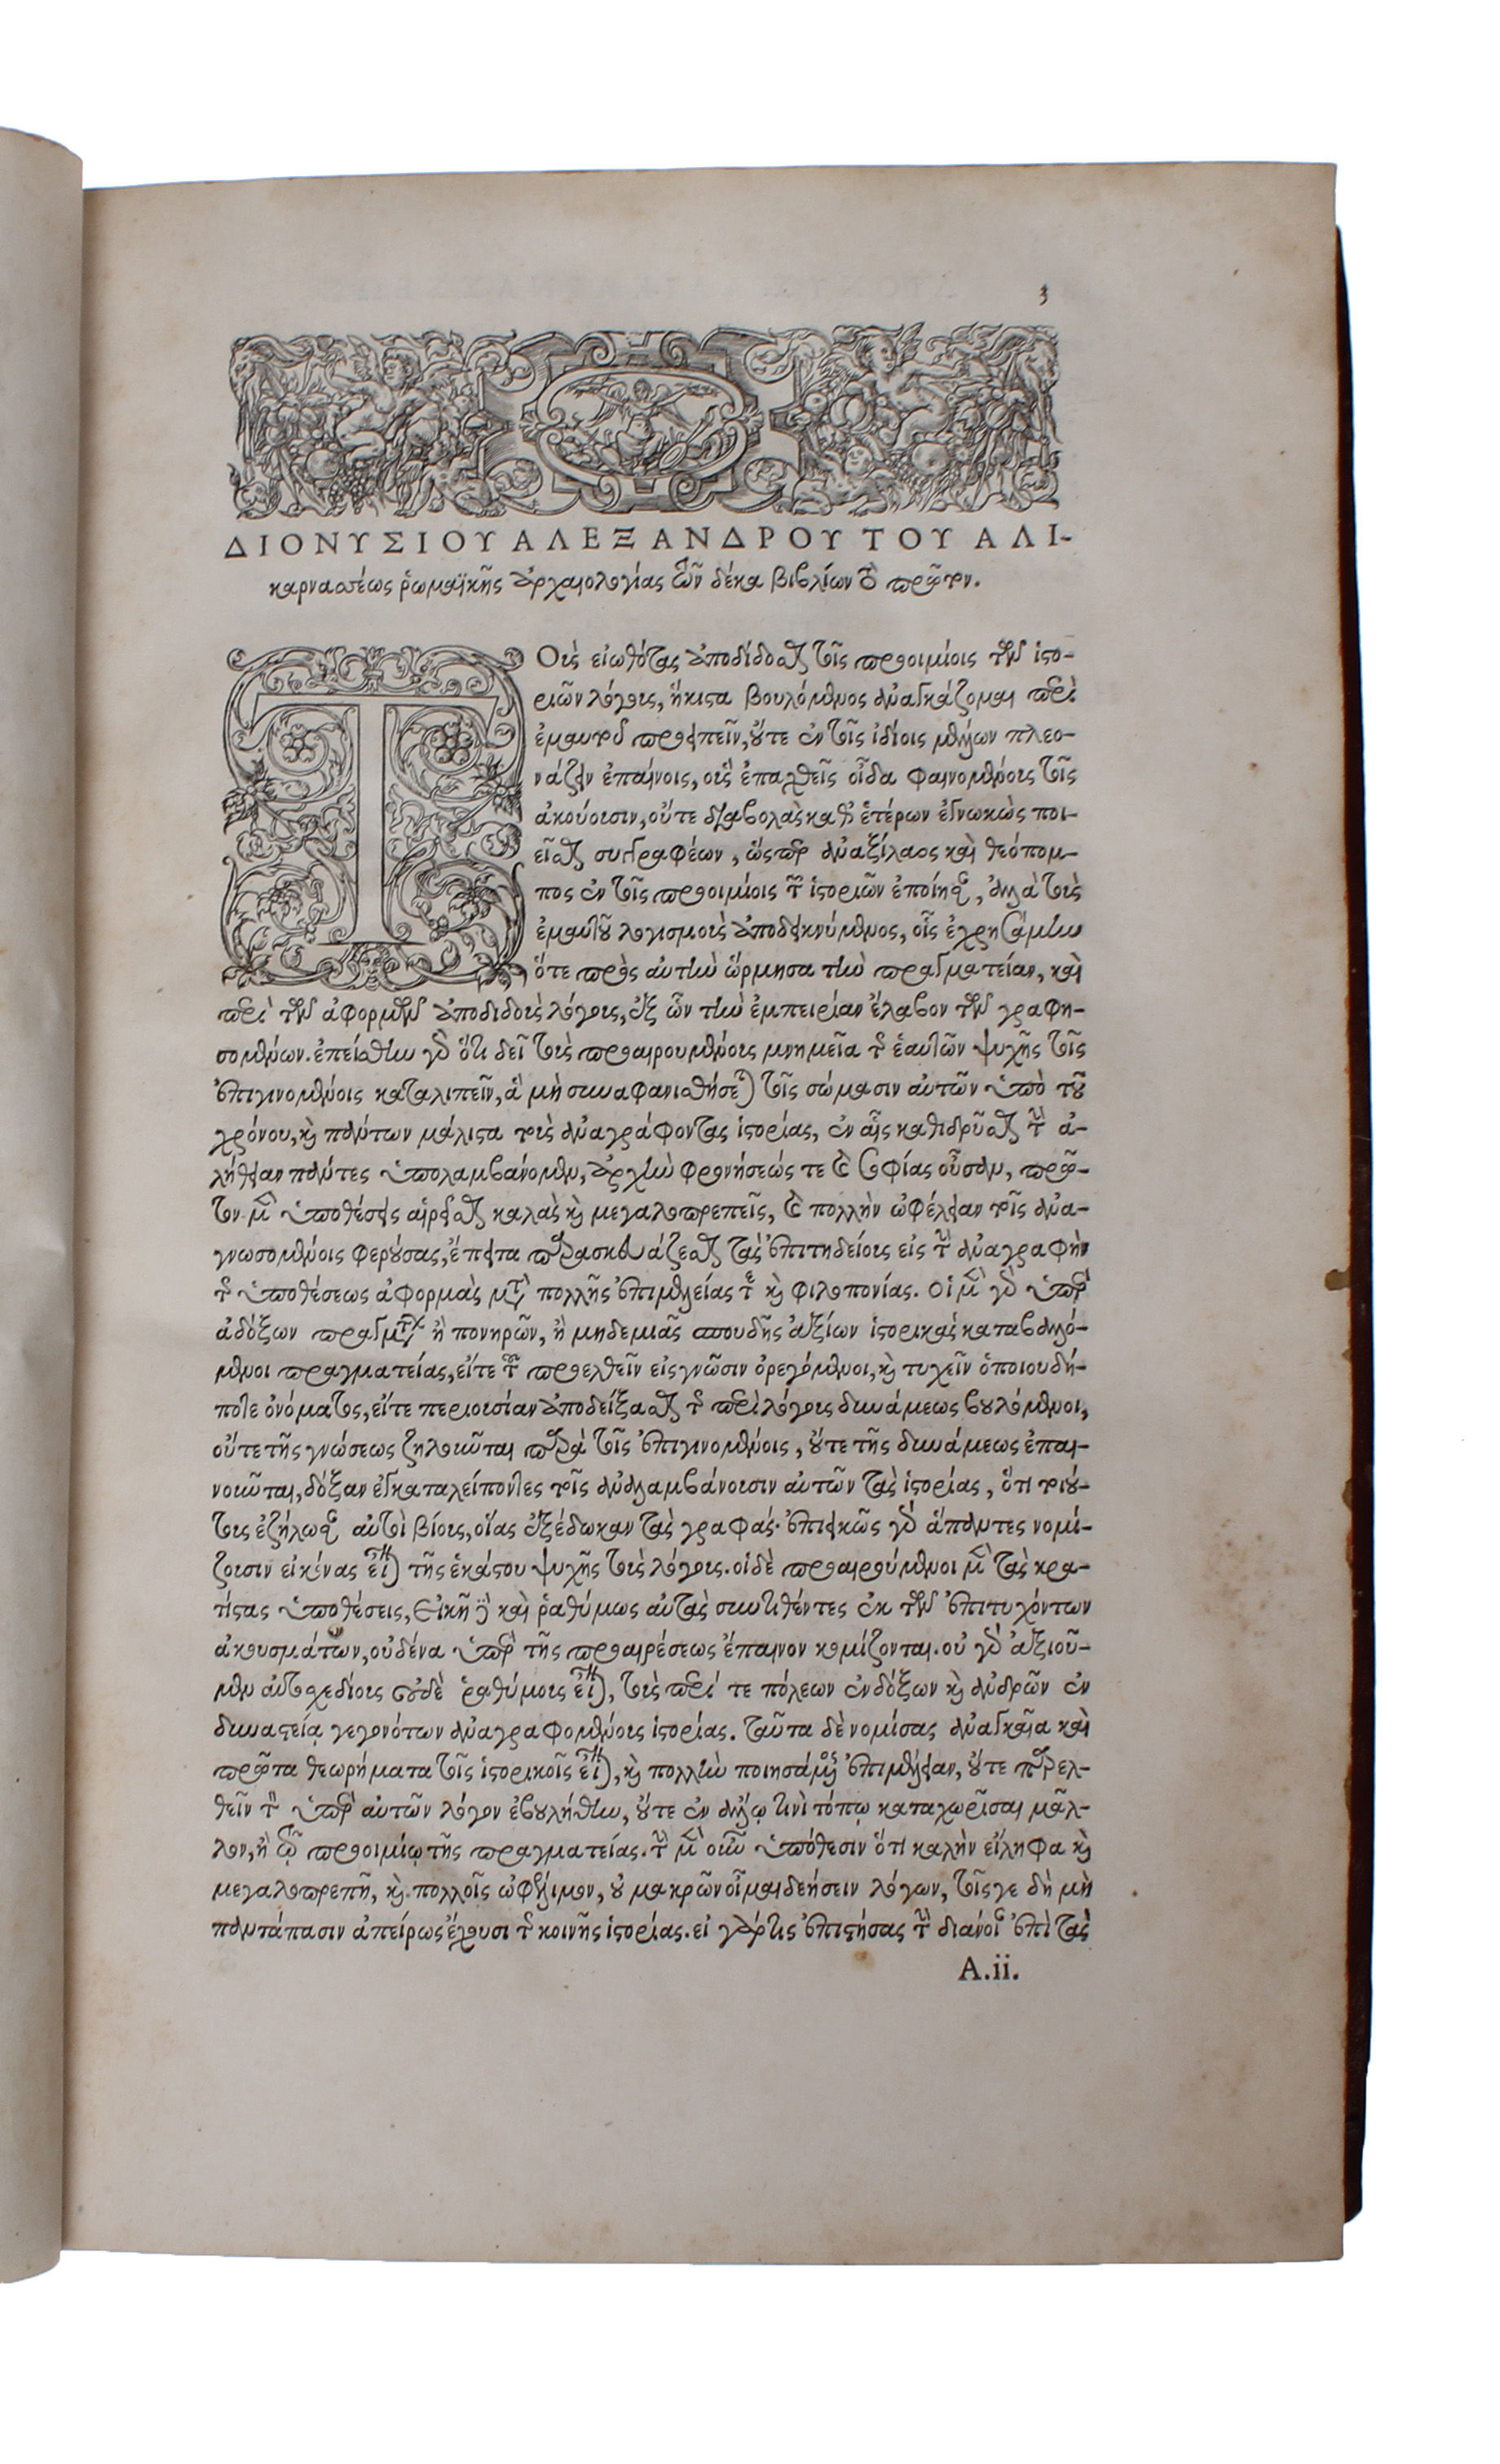 3
ΔΙΟΝΥΣΙΟΥ ΑΛΕΞΑΝΔΡΟΥ ΤΟΥ ΑΛΙ-
καρνασέως ῥωμαϊκῆς ἀρχαιολογίας τῶν δέκα βιβλίων τὸ πρῶτον.
Τοὺς εἰωθότας ἀποδίδοσθαι τοῖς προοιμίοις τῶν ἱστο-
ριῶν λόγους, ἥκιστα βουλόμενος ἀναγκάζομαι περὶ
ἐμαυτοῦ προειπεῖν, οὔτε ἐν τοῖς ἰδίοις μέλλων πλεο-
νάζειν ἐπαίνοις, οὓς ἐπαχθεῖς οἶδα φαινομένους τοῖς
ἀκούουσιν, οὔτε διαβολὰς καθ' ἑτέρων ἐγνωκὼς ποι-
εῖσθαι συγγραφέων, ὥσπερ ἀναξίλαος καὶ θεόπομ-
πος ἐν τοῖς προοιμίοις τῶν ἱστοριῶν ἐποίησαν, ἀλλὰ τοὺς
ἐμαυτοῦ λογισμοὺς ἀποδεικνύμενος, οἷς ἐχρησάμην
ὅτε πρὸς αὐτὴν ὥρμησα τὴν πραγματείαν, καὶ
περὶ τῶν ἀφορμῶν ἀποδιδοὺς λόγους, ἐξ ὧν τὴν ἐμπειρίαν ἔλαβον τῶν γραφη-
σομένων. ἐπείσθην γὰρ ὅτι δεῖ τοὺς προαιρουμένους μνημεῖα τῆς ἑαυτῶν ψυχῆς τοῖς
ἐπιγινομένοις καταλιπεῖν, ἃ μὴ συναφανισθήσεται τοῖς σώμασιν αὐτῶν ὑπὸ τοῦ
χρόνου, καὶ πάντων μάλιστα τοὺς ἀναγράφοντας ἱστορίας, ἐν αἷς καθιδρῦσθαι τὴν ἀ-
λήθειαν πάντες ὑπολαμβάνομεν, ἀρχὴν φρονήσεώς τε καὶ σοφίας οὖσαν, πρῶ-
τον μὲν ὑποθέσεις αἱρεῖσθαι καλὰς καὶ μεγαλοπρεπεῖς, καὶ πολλὴν ὠφέλειαν τοῖς ἀνα-
γνωσομένοις φερούσας, ἔπειτα παρασκευάζεσθαι τὰς ἐπιτηδείους εἰς τὴν ἀναγραφὴν
τῆς ὑποθέσεως ἀφορμὰς μετὰ πολλῆς ἐπιμελείας τε καὶ φιλοπονίας. οἱ μὲν γὰρ ὑπὲρ
ἀδόξων πραγμάτων ἢ πονηρῶν, ἢ μηδεμιᾶς σπουδῆς ἀξίων ἱστορικὰς καταβαλό-
μενοι πραγματείας, εἴτε τοῦ προελθεῖν εἰς γνῶσιν ὀρεγόμενοι, καὶ τυχεῖν ὁποιουδή-
ποτε ὀνόματος, εἴτε περιουσίαν ἀποδείξασθαι τῆς περὶ λόγους δυνάμεως βουλόμενοι,
οὔτε τῆς γνώσεως ζηλοῦνται παρὰ τοῖς ἐπιγινομένοις, οὔτε τῆς δυνάμεως ἐπαι-
νοῦνται, δόξαν ἐγκαταλείποντες τοῖς ἀναλαμβάνουσιν αὐτῶν τὰς ἱστορίας, ὅτι τοιού-
τους ἐζήλωσαν αὐτοὶ βίους, οἵας ἐξέδωκαν τὰς γραφάς· ἐπιεικῶς γὰρ ἅπαντες νομί-
ζουσιν εἰκόνας εἶναι τῆς ἑκάστου ψυχῆς τοὺς λόγους. οἱ δὲ προαιρούμενοι μὲν τὰς κρα-
τίστας ὑποθέσεις, εἰκῆ δὲ καὶ ῥαθύμως αὐτὰς συντιθέντες ἐκ τῶν ἐπιτυχόντων
ἀκουσμάτων, οὐδένα ὑπὲρ τῆς προαιρέσεως ἔπαινον κομίζονται. οὐ γὰρ ἀξιοῦ-
μεν αὐτοσχεδίους οὐδὲ ῥαθύμους εἶναι, τοὺς περί τε πόλεων ἐνδόξων καὶ ἀνδρῶν ἐν
δυναστείᾳ γεγονότων ἀναγραφομένους ἱστορίας. ταῦτα δὲ νομίσας ἀναγκαῖα καὶ
πρῶτα θεωρήματα τοῖς ἱστορικοῖς εἶναι, καὶ πολλὴν ποιησάμενος ἐπιμέλειαν, οὔτε παρελ-
θεῖν τὸν ὑπὲρ αὐτῶν λόγον ἐβουλήθην, οὔτε ἐν ἄλλῳ τινὶ τόπῳ καταχωρῖσαι μᾶλ-
λον, ἢ τῷ προοιμίῳ τῆς πραγματείας. τὴν μὲν οὖν ὑπόθεσιν ὅτι καλὴν εἴληφα καὶ
μεγαλοπρεπῆ, καὶ πολλοῖς ὠφέλιμον, οὐ μακρῶν οἶμαι δεήσειν λόγων, τοῖς γε δὴ μὴ
παντάπασιν ἀπείρως ἔχουσι τῆς κοινῆς ἱστορίας. εἰ γάρ τις ἐπιστήσας τὴν διάνοιαν ἐπὶ τὰς
A.ii.